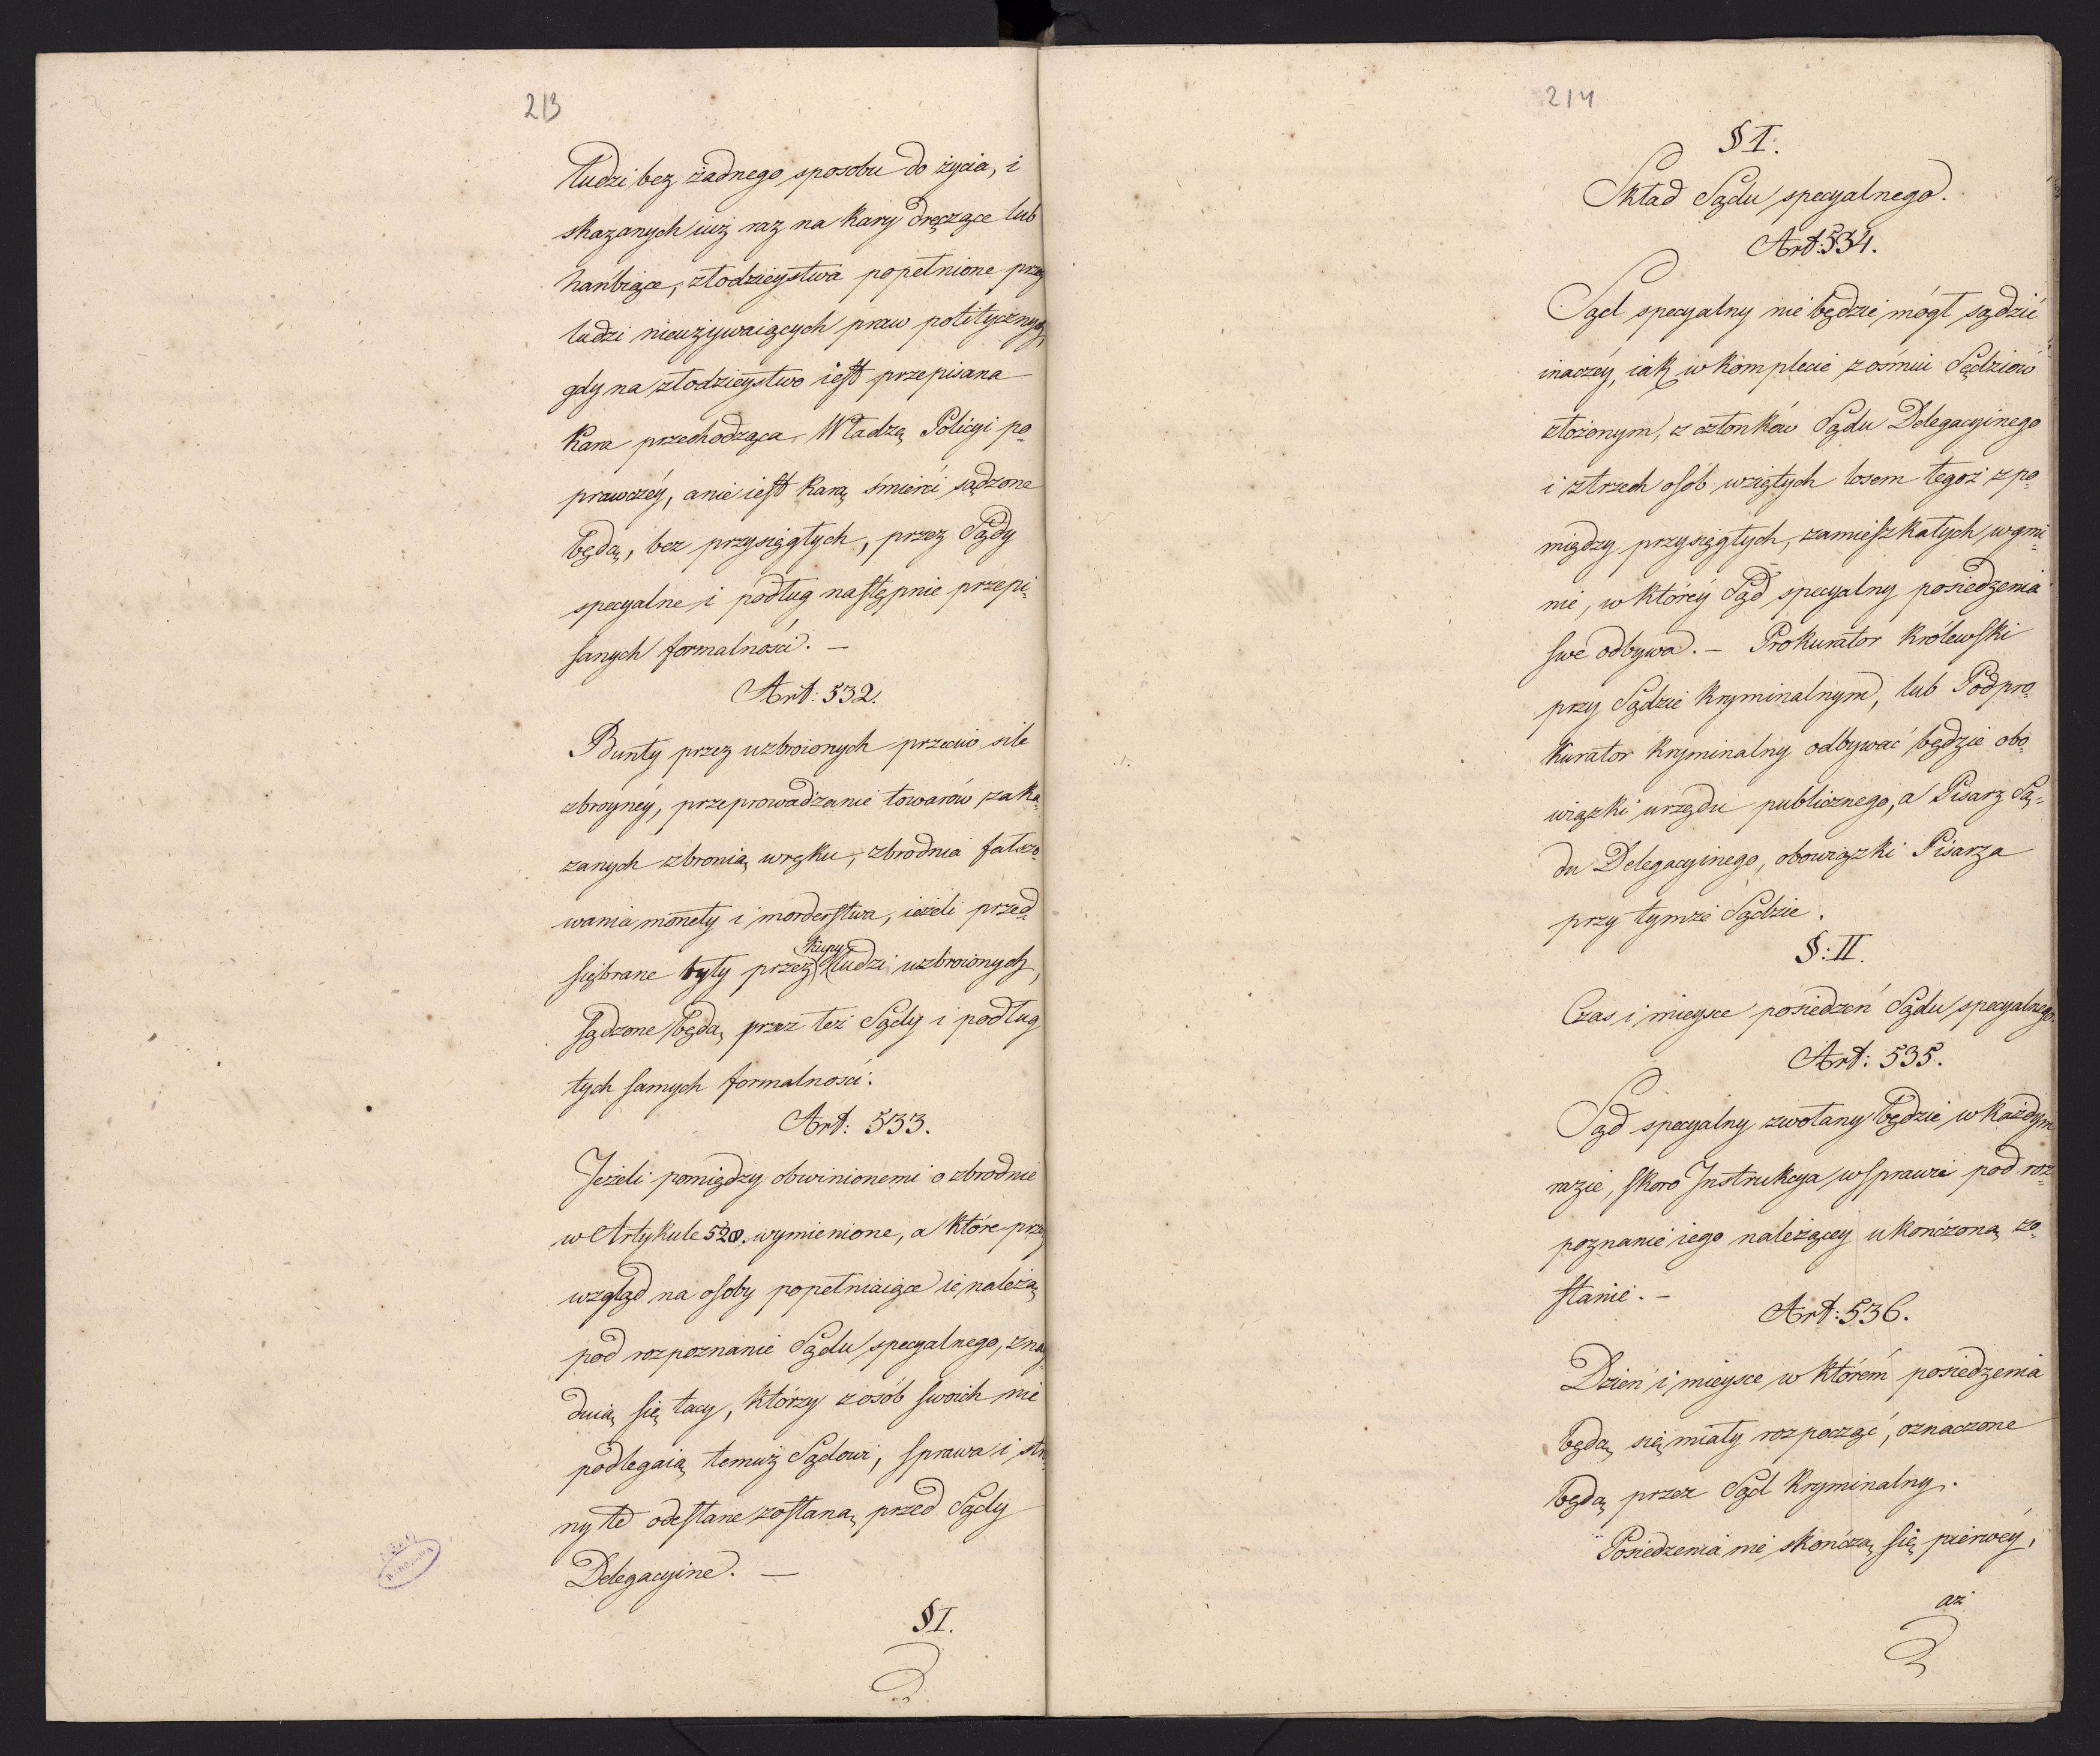 213
ludzi bez żadnego sposobu do życia, i
skazanych iuż raz na kary dręczące lub
hańbiące, złodzieystwa popełnione przez
ludzi nieużywaiących praw politycznych,
gdy na złodzieystwo iest przepisana
kara przechodząca Władzę Policyi po-
prawczéy, a nie iest karą śmierci sądzone
będą, bez przysięgłych, przez Sądy
specyalne i podług następnie przepi-
sanych formalności. —
Art: 532.
Bunty przez uzbroionych przeciw sile
zbroynéy, przeprowadzanie towarów zaka-
zanych z bronią w ręku, zbrodnia fałszo-
wania monety i morderstwa, ieżeli przed-
kupy
siębrane były przez ludzi uzbroionych,
sądzone będą przez też Sądy i podług
tych samych formalności.
Art: 533.
Jeżeli pomiędzy obwinionemi o zbrodnie
w Artykule 520. wymienione, a które przez
wzgląd na osoby popełniaiące ie, należą
pod rozpoznanie Sądu specyalnego, znay-
duią się tacy, którzy z osób swoich nie
podlegaią temuż Sądowi, sprawa i stro-
ny te odesłane zostaną przed Sądy
Delegacyine. —
§ I.
214
§ I.
Skład Sądu specyalnego.
Art: 534.
Sąd specyalny nie będzie mógł sądzić
inaczéy, iak w komplecie z ośmiu Sędziów
złożonym, z członków Sądu Delegacyinego
i z trzech osób wziętych losem tegoż z po-
między przysięgłych, zamieszkałych w gmi-
nie, w któréy Sąd specyalny posiedzenia
swe odbywa. — Prokurator Królewski
przy Sądzie Kryminalnym, lub Podpro-
kurator Kryminalny odbywać będzie obo-
wiązki urzędu publicznego, a Pisarz Są-
du Delegacyinego, obowiązki Pisarza
przy tymże Sądzie.
§: II.
Czas i mieysce posiedzeń Sądu specyalnego.
Art: 535.
Sąd specyalny zwołany będzie w każdym
razie, skoro Instrukcya w sprawie pod roz-
poznanie iego należącey ukończoną zo-
stanie. —
Art: 536.
Dzień i mieysce w którém posiedzenia
będą się miały rozpocząć, oznaczone
będą przez Sąd Kryminalny.
Posiedzenia nie skończą się pierwéy,
aż